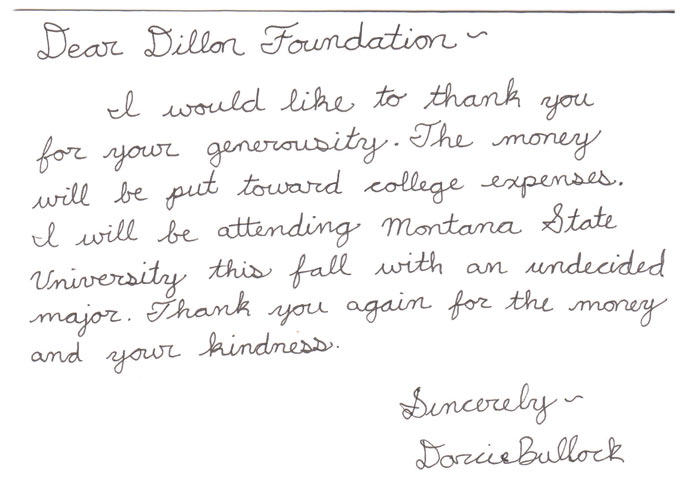 Dear Dillon Foundation ~
I would like to thank you
for your generousity. The money
will be put toward college expenses.
I will be attending Montana State
University this fall with an undecided
major. Thank you again for the money
and your kindness.
Sincerely ~
Darcie Bullock